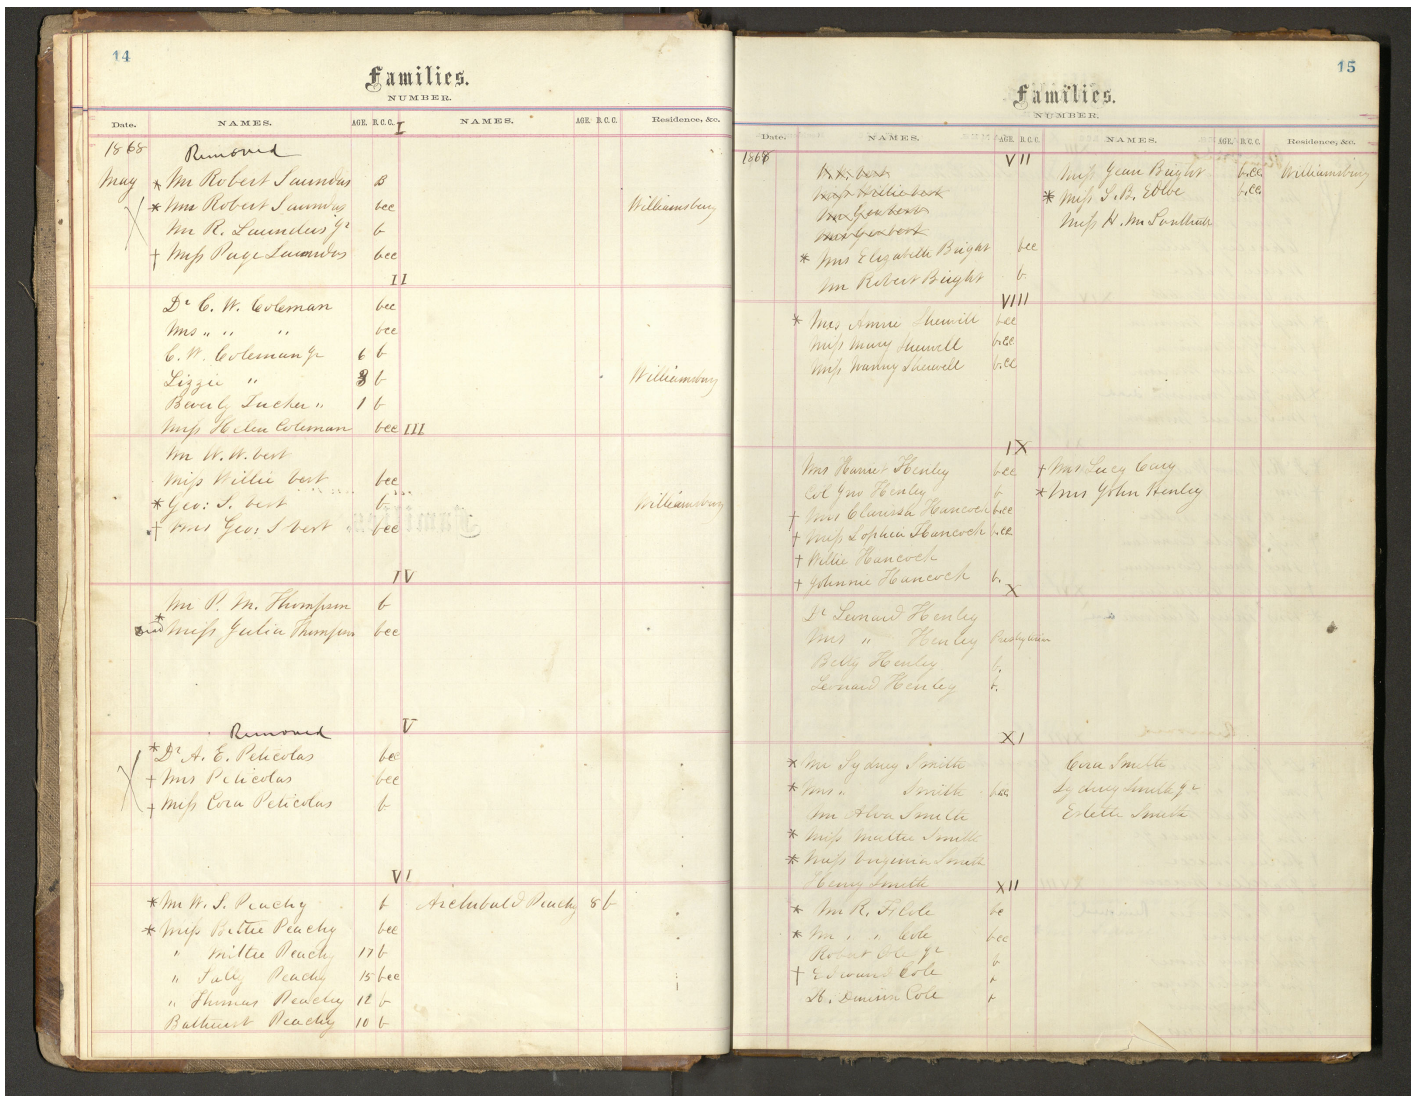 14
Families.
NUMBER.
Date. NAMES. AGE. B.C.C. NAMES. AGE. B.C.C. Residence, &c.
I
1868 Removed
May * Mr Robert Saunders B
* Mrs Robert Saunders bcc Williamsburg
Mr R. Saunders Jr b
† Miss Page Saunders bcc
II
Dr C. W. Coleman bcc
Mrs " " " bcc
C. W. Coleman Jr 6 b
Lizzie " 3 b Williamsburg
Beverly Tucker " 1 b
Miss Helen Coleman bcc
III
Mr W. W. Vest
Miss Willie Vest bcc
* Geo: S. Vest b Williamsburg
† Mrs Geo: S Vest bcc
IV
Mr P. M. Thompson b
* Miss Julia Thompson bcc
V
Removed
* Dr A. E. Peticolas bcc
† Mrs Peticolas bcc
† Miss Cora Peticolas b
VI
* Mr W. S. Peachy b Archibald Peachy 8 b
* Miss Bettie Peachy bcc
" Mittie Peachy 17 b
" Sally Peachy 15 bcc
" Thomas Peachy 12 b
Bathurst Peachy 10 b
15
Families.
NUMBER.
Date. NAMES. AGE. B.C.C. NAMES. AGE. B.C.C. Residence, &c.
1868 VII
W. W. Vest Miss Jean Bright b.cc Williamsburg
Miss Willie Vest * Miss S. B. b.cc
Mr Geo Vest Miss H. M. Southall
Mrs Geo Vest
* Mrs Elizabeth Bright bcc
Mr Robert Bright b
VIII
* Mrs Annie Sherwell bcc
Miss Mary Sherwell b.cc
Miss Nanny Sherwell b.cc
IX
Mrs Harriet Henley bcc † Mrs Lucy Cary
Col Jno Henley b * Mrs John Henley
† Mrs Clarissa Hancock b.cc
† Miss Sophia Hancock b.cc
† Willie Hancock
† Johnnie Hancock b.
X
Dr Leonard Henley
Mrs " Henley Presbyterian
Betty Henley b.
Leonard Henley b.
XI
* Mr Sydney Smith Cora Smith
* Mrs " Smith bcc Sydney Smith Jr
Mr Alva Smith Estelle Smith
* Miss Mattie Smith
* Miss Virginia Smith
Henry Smith
XII
* Mr R. F. Cole bc
* Mrs " " Cole bcc
Robert Cole Jr b
† Edward Cole "
H. Denison Cole "